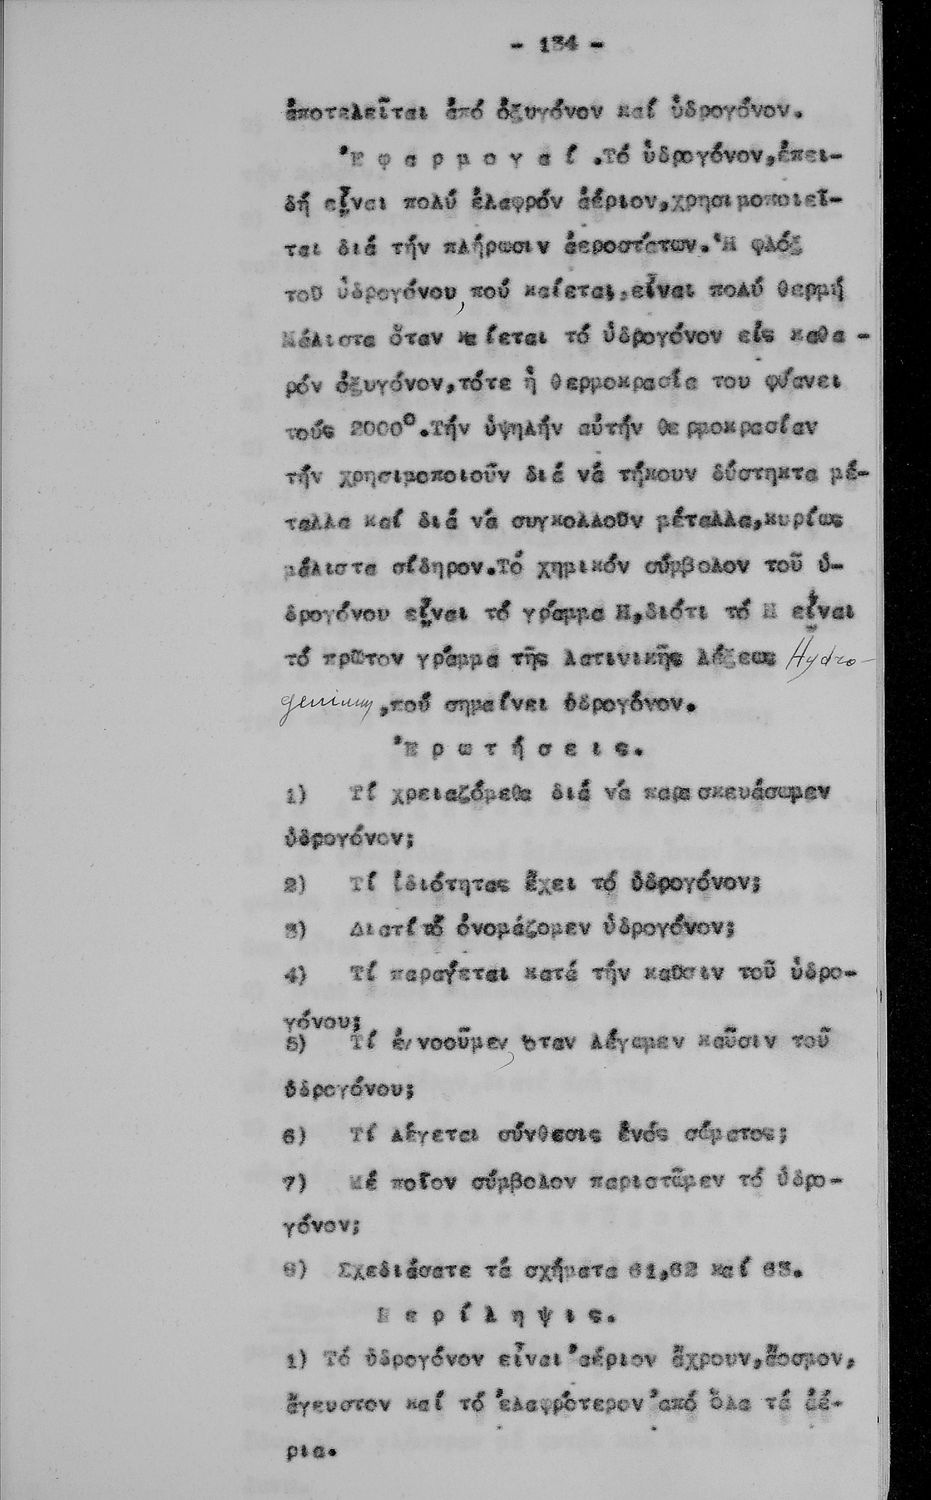 - 134 -
ἀποτελεῖται ἀπό ὀξυγόνον καί ὑδρογόνον.
Ἐφαρμογαί.Τό ὑδρογόνον,ἐπει-
δή εἶναι πολύ ἐλαφρόν ἀέριον,χρησιμοποιεῖ-
ται διά τήν πλήρωσιν ἀεροστάτων.Ἡ φλόξ
τοῦ ὑδρογόνου, πού καίεται,εἶναι πολύ θερμή
Μάλιστα ὅταν καίεται τό ὑδρογόνον εἰς καθα-
ρόν ὀξυγόνον,τότε ἡ θερμοκρασία του φθάνει
τούς 2000°.Τήν ὑψηλήν αὐτήν θερμοκρασίαν
τήν χρησιμοποιοῦν διά νά τήκουν δύστηκτα μέ-
ταλλα καί διά νά συγκολλοῦν μέταλλα,κυρίως
μάλιστα σίδηρον.Τό χημικόν σύμβολον τοῦ ὑ-
δρογόνου εἶναι τό γράμμα Η,διότι τό Η εἶναι
τό πρῶτον γράμμα τῆς λατινικῆς λέξεως Hydro-
genium,πού σημαίνει ὑδρογόνον.
Ἐρωτήσεις.
1) Τί χρειαζόμεθα διά νά παρασκευάσωμεν
ὑδρογόνον;
2) Τί ἰδιότητας ἔχει τό ὑδρογόνον;
3) Διατί τό ὀνομάζομεν ὑδρογόνον;
4) Τί παράγεται κατά τήν καῦσιν τοῦ ὑδρο-
γόνου;
5) Τί ἐννοοῦμεν, ὅταν λέγωμεν καῦσιν τοῦ
ὑδρογόνου;
6) Τί λέγεται σύνθεσις ἑνός σώματος;
7) Μέ ποῖον σύμβολον παριστῶμεν τό ὑδρο-
γόνον;
8) Σχεδιάσατε τά σχήματα 61,62 καί 63.
Περίληψις.
1) Τό ὑδρογόνον εἶναι ἀέριον ἄχρουν,ἄοσμον,
ἄγευστον καί τό ἐλαφρότερον ἀπό ὅλα τά ἀέ-
ρια.